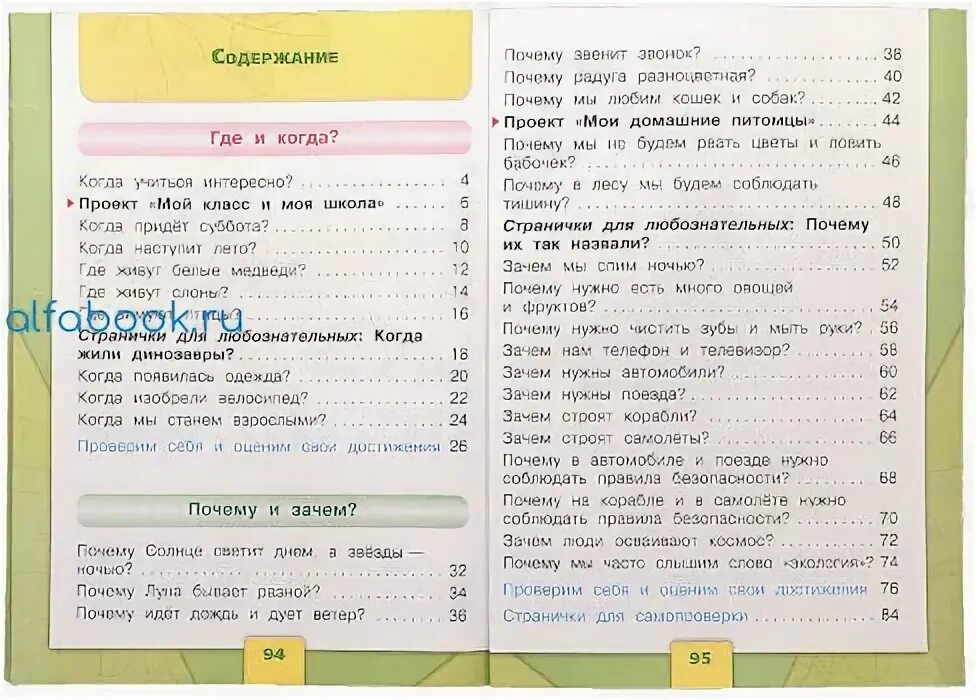 Содержание
Где и когда?
Когда учиться интересно? 4
Проект «Мой класс и моя школа» 6
Когда придёт суббота? 8
Когда наступит лето? 10
Где живут белые медведи? 12
Где живут слоны? 14
Где зимуют птицы? 16
alfabook.ru
Странички для любознательных: Когда
жили динозавры? 18
Когда появилась одежда? 20
Когда изобрели велосипед? 22
Когда мы станем взрослыми? 24
Проверим себя и оценим свои достижения 26
Почему и зачем?
Почему Солнце светит днём, а звёзды —
ночью? 32
Почему Луна бывает разной? 34
Почему идёт дождь и дует ветер? 36
94
Почему звенит звонок? 38
Почему радуга разноцветная? 40
Почему мы любим кошек и собак? 42
Проект «Мои домашние питомцы» 44
Почему мы не будем рвать цветы и ловить
бабочек? 46
Почему в лесу мы будем соблюдать
тишину? 48
Странички для любознательных: Почему
их так назвали? 50
Зачем мы спим ночью? 52
Почему нужно есть много овощей
и фруктов? 54
Почему нужно чистить зубы и мыть руки? 56
Зачем нам телефон и телевизор? 58
Зачем нужны автомобили? 60
Зачем нужны поезда? 62
Зачем строят корабли? 64
Зачем строят самолёты? 66
Почему в автомобиле и поезде нужно
соблюдать правила безопасности? 68
Почему на корабле и в самолёте нужно
соблюдать правила безопасности? 70
Зачем люди осваивают космос? 72
Почему мы часто слышим слово «экология»? 74
Проверим себя и оценим свои достижения 76
Странички для самопроверки 84
95